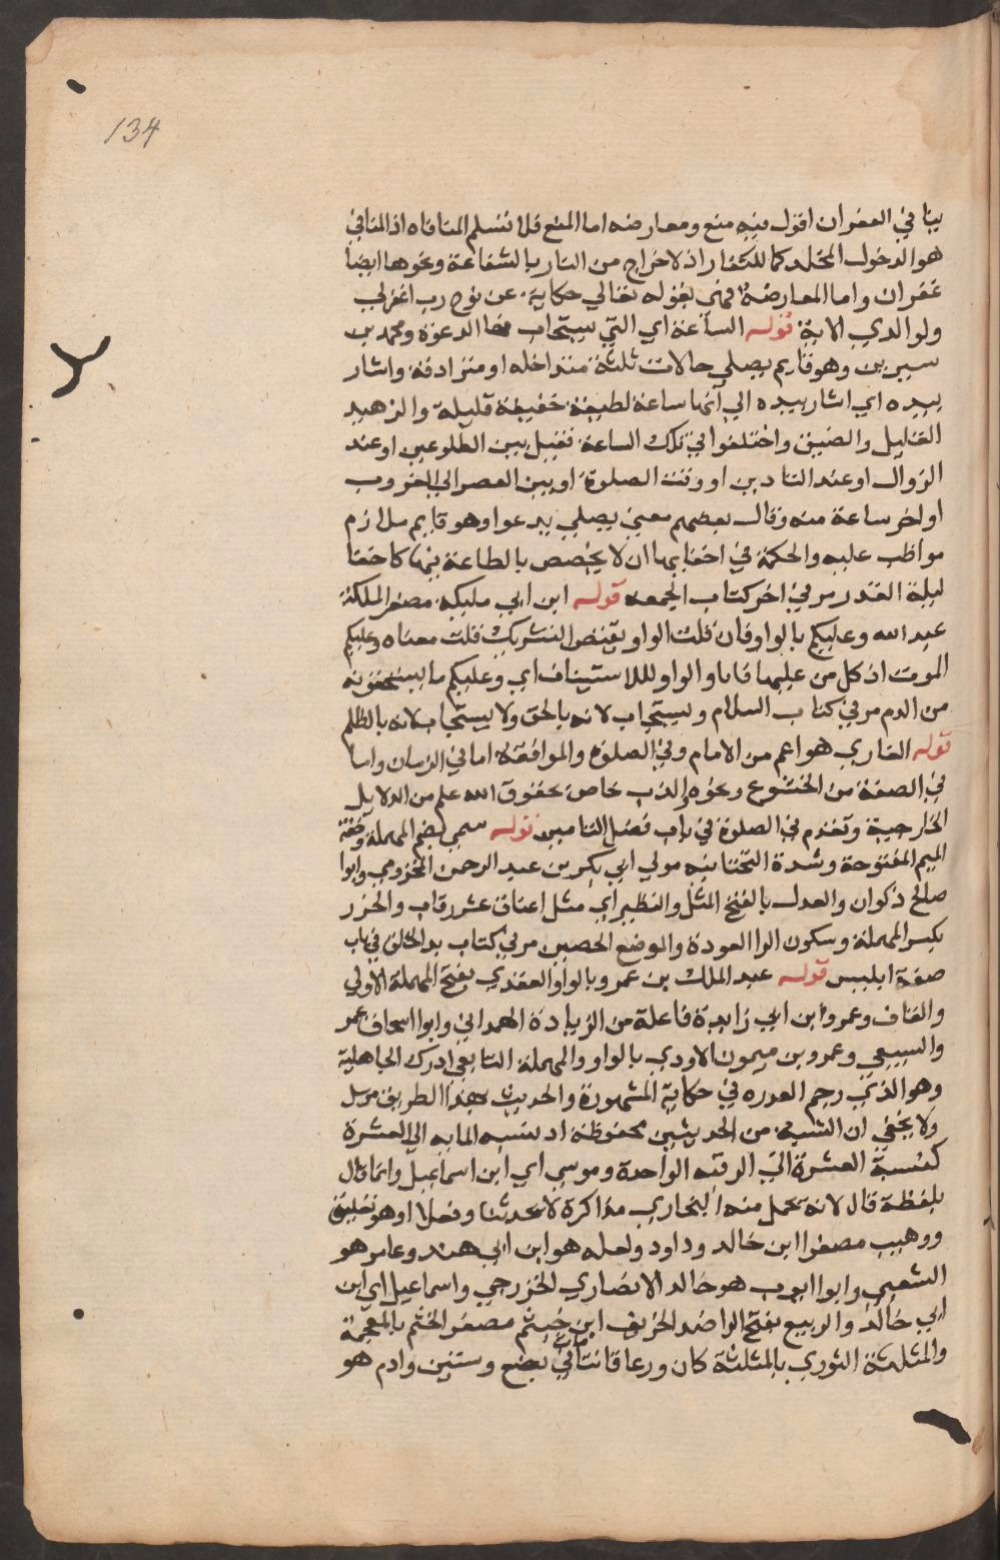 134
ينافي الغفران اقول فيه منع ومعارضه اما المنع فلا نسلم المنافاه اذ المنافي
هو الدخول المخلد كما للكفار اذ لاخراج من النار بالشفاعة ونحوها ايضا
غفران واما المعارضة فهي بقوله تعالي حكاية عن نوح رب اغفر لي
ولوالدي الاية قوله الساعة اي التي يستجاب فيها الدعوة ومحمد بن
سيرين وهو قايم يصلي حالات ثلثة متداخله او مترادفة واشار
بيده اي اشار بيده الي آنها ساعة لطيفة خفيفة قليلة والزهيد
القليل والضيق واختلفوا في تلك الساعة فقيل بين الطلوعين او عند
الزوال او عند التادين او وقت الصلوة او بين العصر الي الغروب
او اخر ساعة منه وقال بعضهم معني يصلي يدعوا وهو قايم ملازم
مواظب عليه والحكمة في اخفايها ان لا يخصص بالطاعة بها كاخفا
ليلة القدر مر في اخر كتاب الجمعه قوله ابن ابي مليكه مصغر الملكة
عبد الله وعليكم بالواو فان قلت الواو يقتضي التشريك قلت معناه وعليكم
الموت اذ كل من عليها فان او الواو للاستيناف اي وعليكم ما يستحقونه
من الذم مر في كتاب السلام ويستجاب لانه بالحق ولا يستجاب لانه بالظلم
قوله القاري هو اعم من الامام وفي الصلوة والموافقة اما في الزمان واما
في الصفة من الخشوع ونحوه والذنب خاص بحقوق الله علم من الدلايل
الخارجية وتقدم في الصلوة في باب فضل التامين قوله سمي بضم المهملة وخفة
الميم المفتوحة وشدة التحتانيه مولي ابي بكر بن عبد الرحمن المخزومي وابوا
صالح ذكوان والعدل بالفتح المثل والنظير اي مثل اعتاق عشر رقاب والحرز
بكسر المهملة وسكون الرا العودة والموضع الحصين مر في كتاب بدا الخلق في باب
صفة ابليس قوله عبد الملك بن عمرو بالواو العقدي بفتح المهملة الاولي
والقاف وعمر وابن ابي زايدة فاعلة من الزيادة الهمداني وابوا اسحاق عمر
والسبيعي وعمرو بن ميمون الاودي بالواو والمهملة التابعي ادرك الجاهلية
وهو الذي رجم القرده في حكاية المشهورة والحديث بهذا الطريق مرسل
ولا يخفي ان النسبة من الحديثين محفوظة اذ نسبه المايه الي العشرة
كنسبة العشرة الي الرقبه الواحدة وموسي اي ابن اسماعيل وانما قال
بلفظة قال لانه تحمل منه البخاري مذاكرة لا تحديثا ونقلا او هو تعليق
ووهيب مصغرا ابن خالد وداود ولعله هو ابن ابي هند وعامر هو
الشعبي وابوا ايوب هو خالد الانصاري الخزرجي واسماعيل اي ابن
ابي خالد والربيع بفتح الرا ضد الخريف ابن خيثم مصغر الخثم بالمعجمة
والمثلثة الثوري بالمثلثة كان ورعا قانتا مات في بضع وستين وادم هو